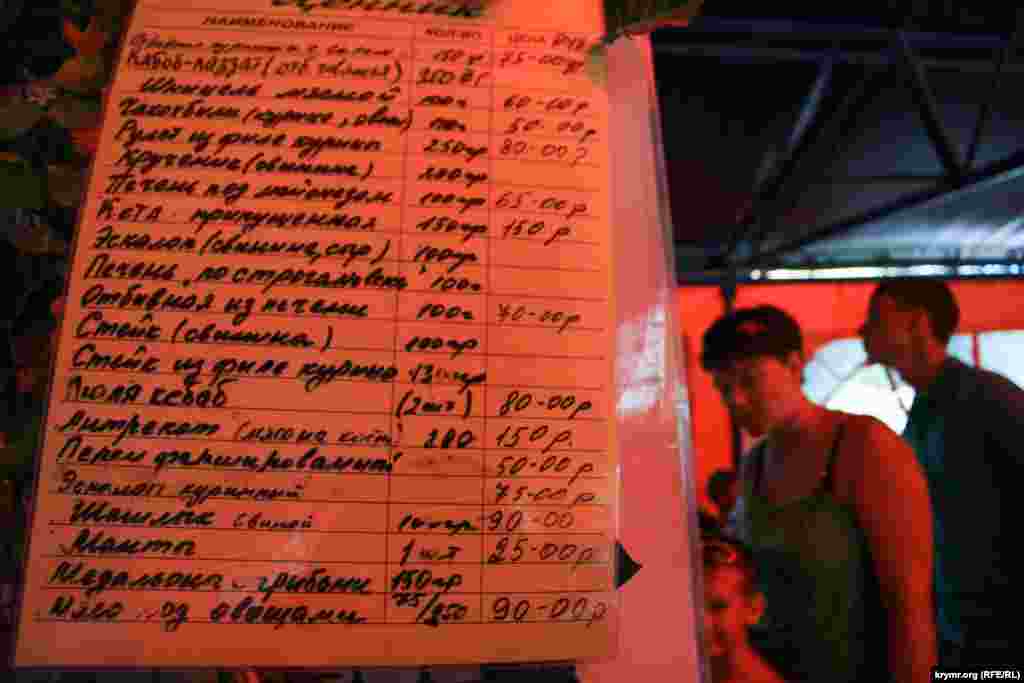 Ценник
НАИМЕНОВАНИЕ КОЛ-ВО ЦЕНА
150 гр 75-00
Кабоб-лаззат (отб. 350
Шницель мясной 100г 60-00р
100г 50-00р
Рулет из филе курицы 250гр 80-00р
Крученик (свинина) 100гр
Печень под майонезом 100гр 65-00р
150гр 150р
Эскалоп (свинина, сыр) 100гр
Печень по строгановски 100г
Отбивная из печени 100г 70-00р
Стейк (свинина) 100гр
Стейк из филе курицы 130гр
Люля кебаб (2шт) 80-00р
Антрекот (мясо на кости) 200 150р.
Перец фаршированный 50-00р
Эскалоп куриный 75-00р
Шашлык свиной 100гр 90-00
Манты 1шт 25-00р
Медальоны грибами 150гр
Мясо под овощами 75/250 90-00р
krymr.org (RFE/RL)